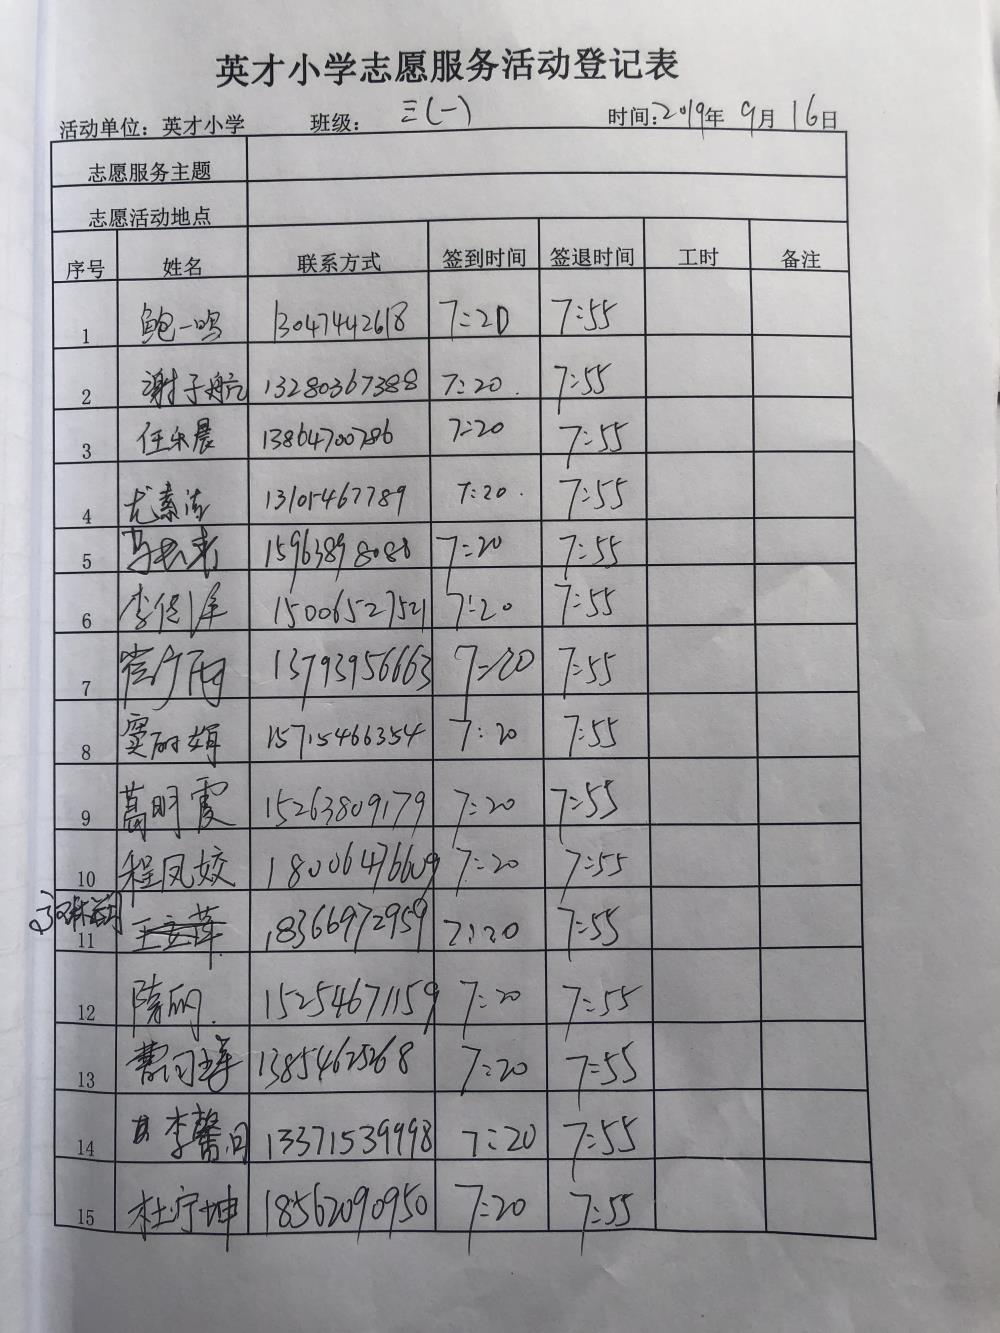 英才小学志愿服务活动登记表
活动单位：英才小学 班级： 三(一) 时间：2019年 9月 16日
志愿服务主题
志愿活动地点
序号 姓名 联系方式 签到时间 签退时间 工时 备注
1 鲍一鸣 13047442618 7:20 7:55
2 谢子航 13280367388 7:20. 7:55
3 任乐晨 13864700786 7:20 7:55
4 尤素 13101467789 7:20. 7:55
5 15963898088 7:20 7:55
6 李 15006527521 7:20 7:55
7 雨 13793956663 7:20 7:55
8 窦丽娟 15715466354 7:20 7:55
9 葛明霞 15263809179 7:20 7:55
10 程凤姣 18006476609 7:20 7:55
11 18366972959 7:20 7:55
12 隋丽. 15254671159 7:20 7:55
13 曹 13854625268 7:20 7:55
14 李馨 13371539998 7:20 7:55
15 杜宁坤 18562090950 7:20 7:55